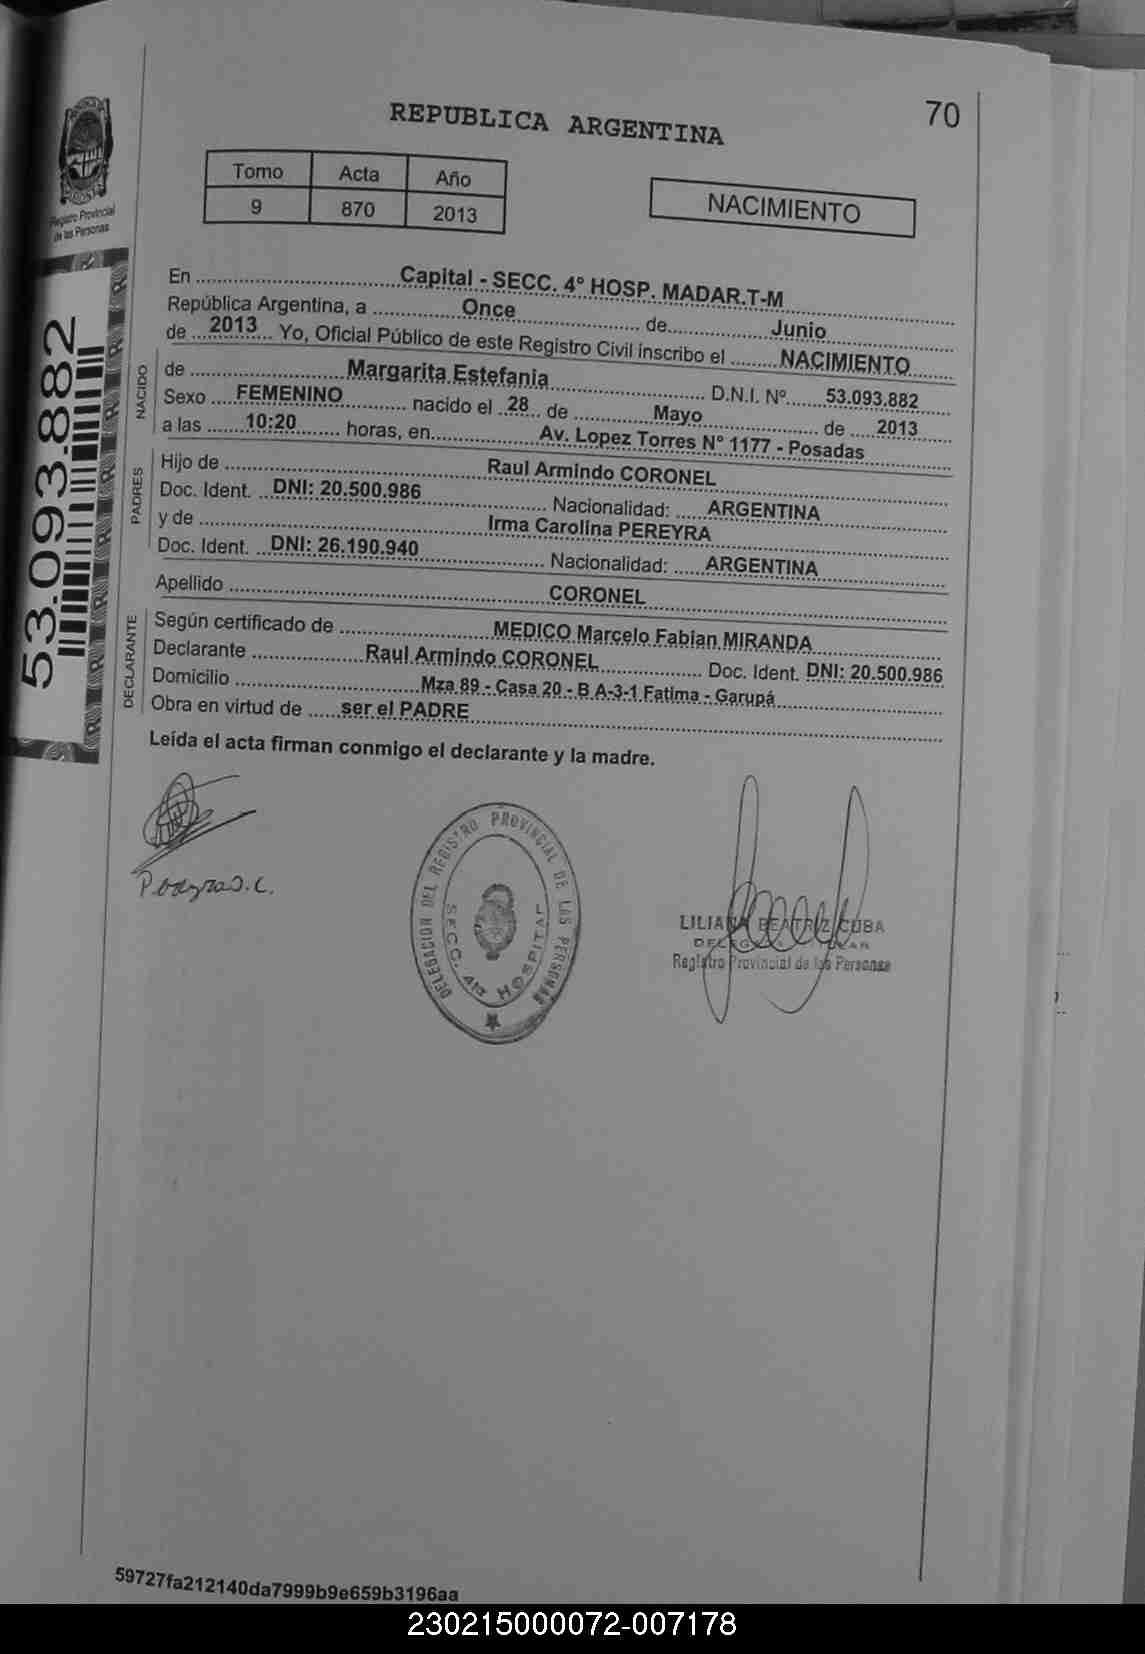 70
REPUBLICA ARGENTINA
Tomo Acta Año
9 870 2013
NACIMIENTO
Registro Provincial
de las Personas
53.093.882
En Capital - SECC. 4º HOSP. MADAR.T-M
República Argentina, a Once de Junio
de 2013 Yo, Oficial Público de este Registro Civil inscribo el NACIMIENTO
NACIDO
de Margarita Estefania D.N.I. Nº 53.093.882
Sexo FEMENINO nacido el 28 de Mayo de 2013
a las 10:20 horas, en Av. Lopez Torres N° 1177 - Posadas
PADRES
Hijo de Raul Armindo CORONEL
Doc. Ident. DNI: 20.500.986 Nacionalidad: ARGENTINA
y de Irma Carolina PEREYRA
Doc. Ident. DNI: 26.190.940 Nacionalidad: ARGENTINA
Apellido CORONEL
DECLARANTE
Según certificado de MEDICO Marcelo Fabian MIRANDA
Declarante Raul Armindo CORONEL Doc. Ident. DNI: 20.500.986
Domicilio Mza 89 - Casa 20 - B A-3-1 Fatima - Garupá
Obra en virtud de ser el PADRE
Leída el acta firman conmigo el declarante y la madre.
DELEGACION DEL REGISTRO PROVINCIAL DE LAS PERSONAS
SECC. 4ta HOSPITAL
LILIANA BEATRIZ CUBA
Registro Provincial de las Personas
59727fa212140da7999b9e659b3196aa
230215000072-007178